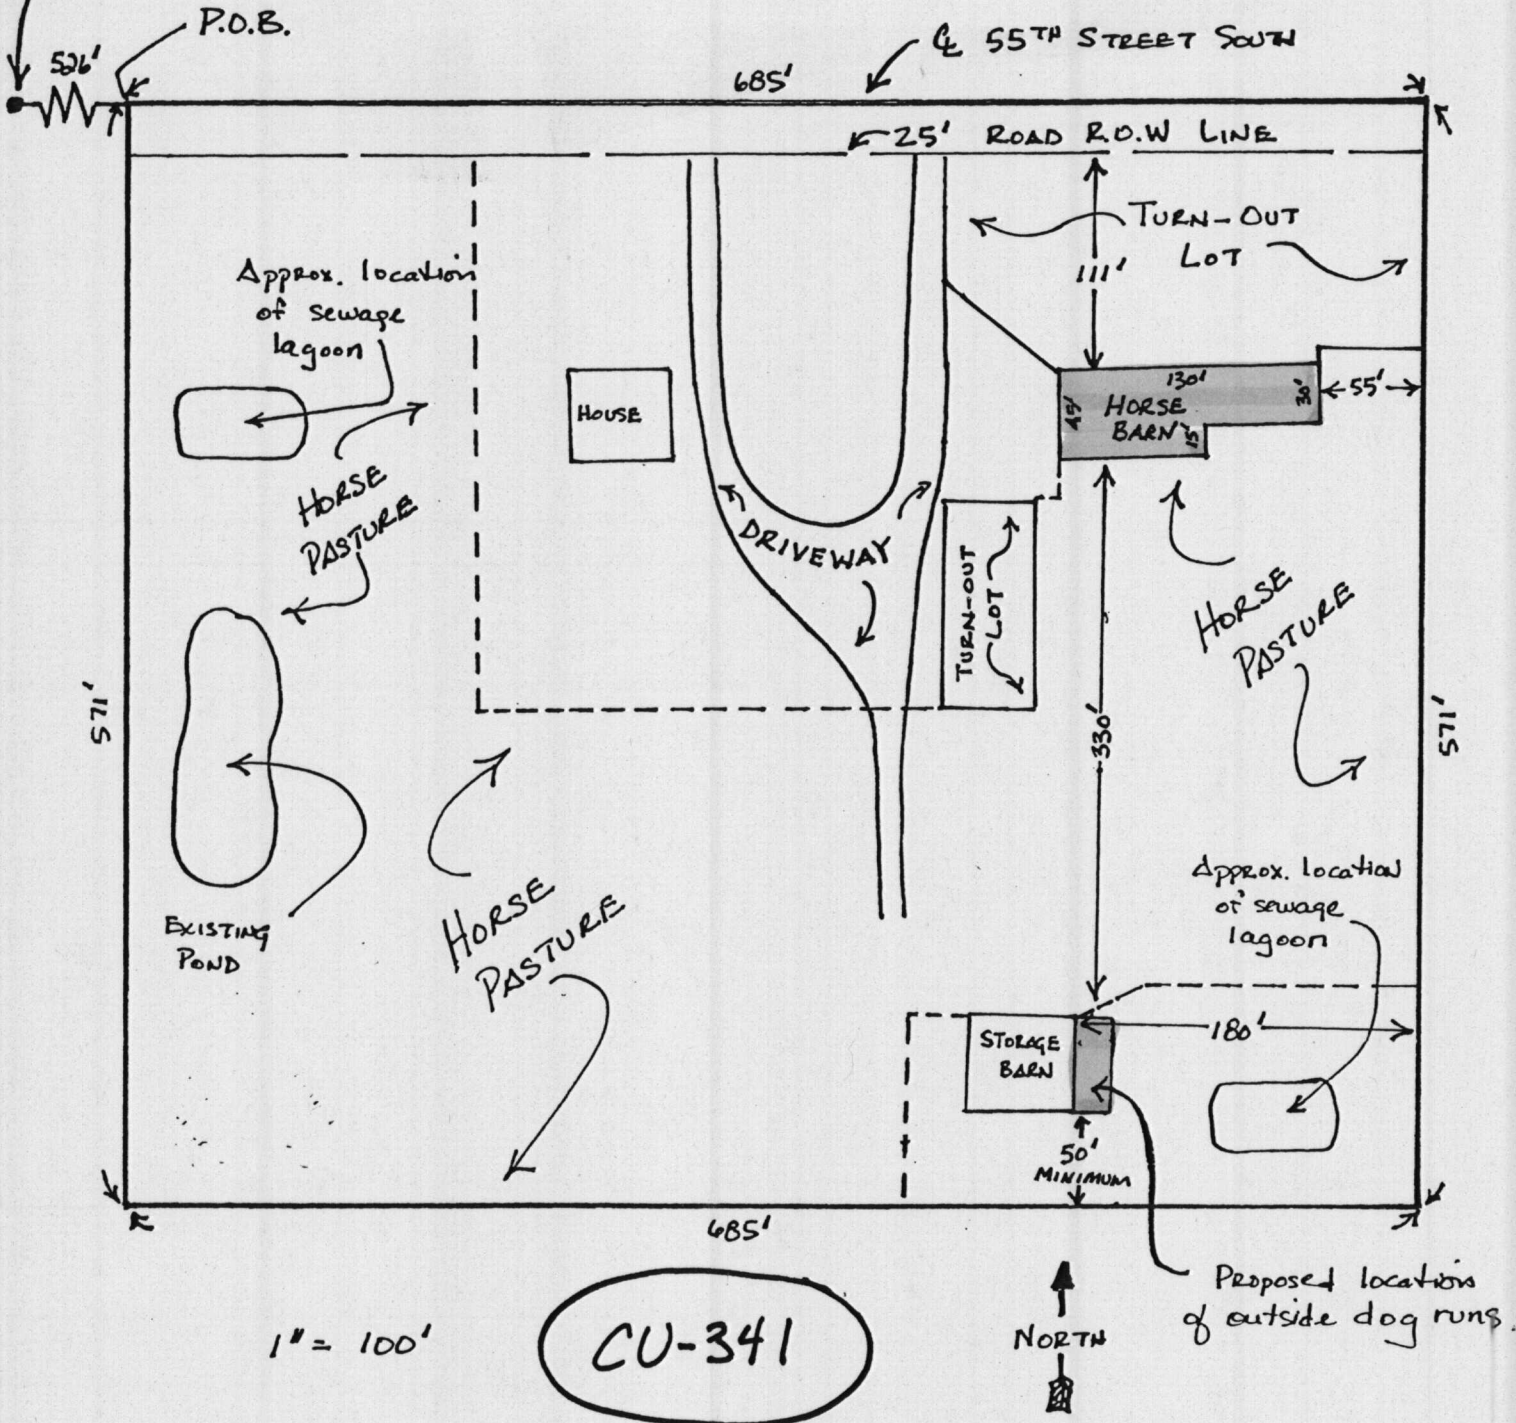 P.O.B.
526'
685'
℄ 55TH STREET SOUTH
25' ROAD R.O.W LINE
TURN-OUT
LOT
111'
Approx. location
of sewage
lagoon
HOUSE
130'
45'
HORSE
BARN
15'
30'
55'
HORSE
PASTURE
DRIVEWAY
TURN-OUT
LOT
HORSE
PASTURE
571'
330'
571'
EXISTING
POND
HORSE
PASTURE
Approx. location
of sewage
lagoon
STORAGE
BARN
180'
50'
MINIMUM
685'
Proposed location
of outside dog runs.
1" = 100'
CU-341
NORTH